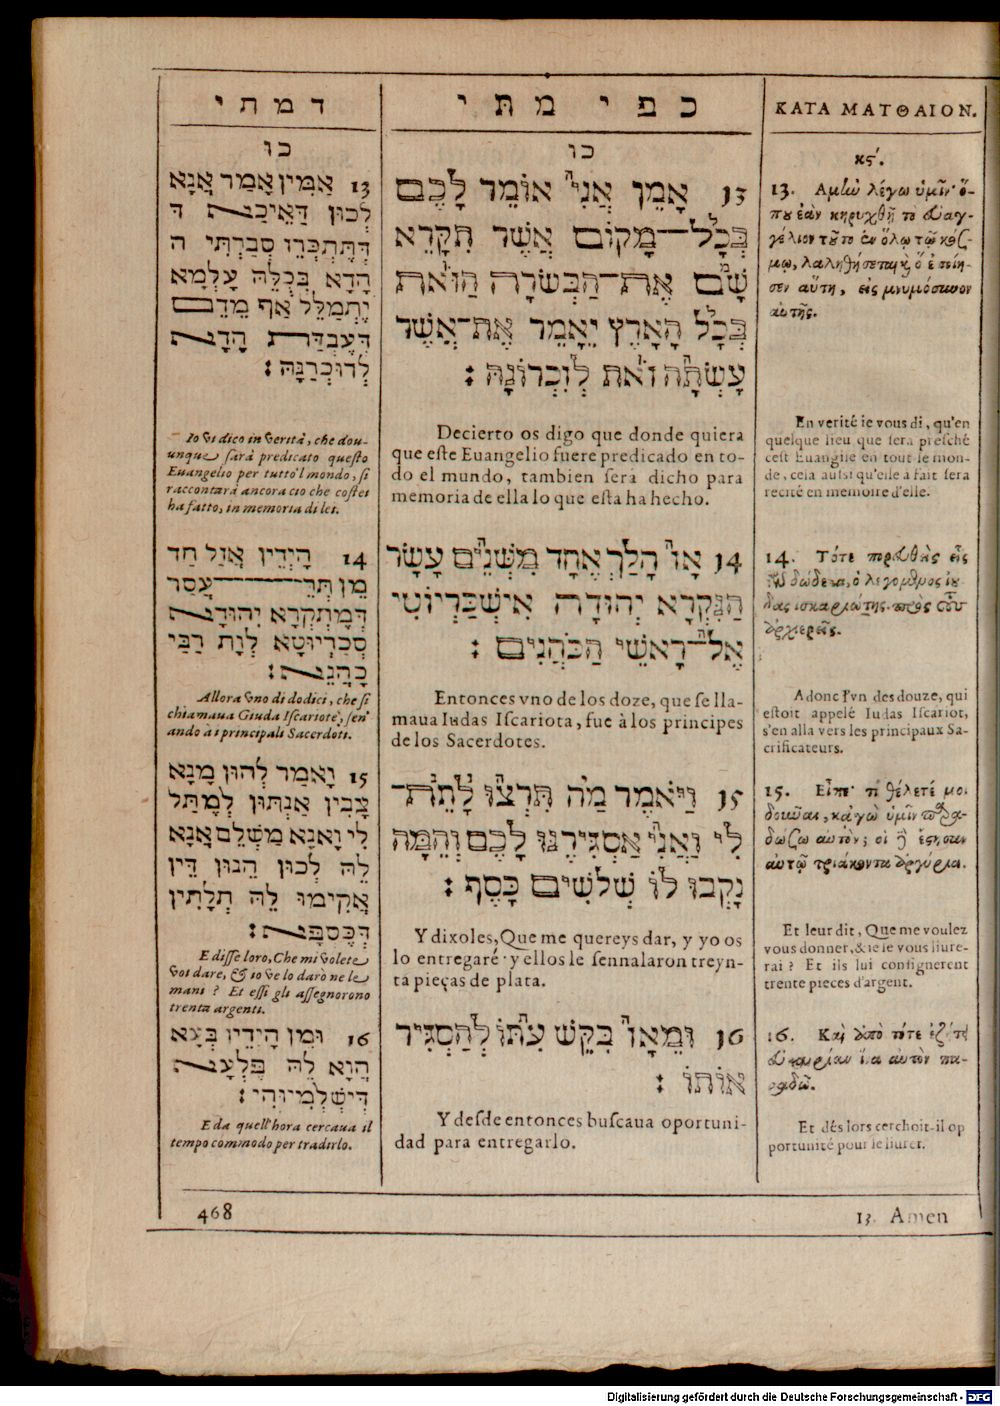 דמתי
כו
13 אַמִּין אָמַר אֲנָא
לְכוּן דַּאֵיכָא דִּ
הָדָא בְּכֻלֵּהּ עָלְמָא
יֶתְמַלַּל אַף מֵדֵם
לְדוּכְרַנָּהּ:
Io vi dico in verità, che dou-
unque sarà predicato questo
Euangelio per tutto'l mondo, si
raccontarà ancora cio che costei
ha fatto, in memoria di lei.
14 הָיְדֵין אֲזַל חַד
מֵן תְּרֵ־עֲסַר
דְּמֶתְקְרֵא יִהוּדָא
סְכַרְיוּטָא לְוָת רַבַּי
כָּהֲנֵא:
Allora vno di dodici, che si
chiamaua Giuda Iscariote, sen'
andò a i principali Sacerdoti.
15 וֶאמַר לְהוּן מָנָא
צָבֵין אַנְתּוּן לְמֶתַּל
לִי וֶאנָא מַשְׁלֵם אֲנָא
לֵהּ לְכוּן הֵנוּן דֵּין
אֲקִימוּ לֵהּ תְּלָתִין
דְּכֶסְפָּא:
E disse loro, Che mi volete
voi dare, & io ve lo darò ne le
mani? Et essi gli assegnorono
trenta argenti.
16 וּמֵן הָיְדֵין בְּעָא
הֲוָא לֵהּ פֶּלְעָא
E da quell'hora cercaua il
tempo commodo per tradirlo.
כפי מתי
כו
13 אָמֵן אֲנִי אוֹמֵר לָכֶם
בְּכָל־מָקוֹם אֲשֶׁר תִּקָּרֵא
שָׁם אֶת־הַבְּשֹׂרָה הַזֹּאת
בְּכָל הָאָרֶץ יֵאָמֵר אֶת־אֲשֶׁר
עָשְׂתָה זֹאת לְזִכְרוֹנָהּ:
Decierto os digo que donde quiera
que este Euangelio fuere predicado en to-
do el mundo, tambien sera dicho para
memoria de ella lo que esta ha hecho.
14 אָז הָלַךְ אֶחָד מִשְּׁנֵים עָשָׂר
הַנִּקְרָא יְהוּדָה אִישְׁכַּרְיוֹטִי
אֶל־רָאשֵׁי הַכֹּהֲנִים:
Entonces vno de los doze, que se lla-
maua Iudas Iscariota, fue à los principes
de los Sacerdotes.
15 וַיֹּאמֶר מַה תִּרְצוּ לָתֵת־
לִי וַאֲנִי אַסְגִּירֶנּוּ לָכֶם וְהֵמָּה
נָקְבוּ לוֹ שְׁלֹשִׁים כָּסֶף:
Y dixoles, Que me quereys dar, y yo os
lo entregaré? y ellos le sennalaron treyn-
ta pieças de plata.
16 וּמֵאָז בִּקֵּשׁ עִתּוֹ לְהַסְגִּיר
אוֹתוֹ:
Y desde entonces buscaua oportuni-
dad para entregarlo.
ΚΑΤΑ ΜΑΤΘΑΙΟΝ.
κϛ΄.
13. Ἀμὼ λέγω ὑμῖν ὅ-
που ἐὰν κηρυχθῇ τὸ ευαγ-
γέλιον τοῦτο ἐν ὅλῳ τῷ κόσ-
μῳ, λαληθήσεται καὶ ὃ ἐποίη-
σεν αὕτη, εἰς μνημόσυνον
αὐτῆς.
En verité ie vous di, qu'en
quelque lieu que sera presché
cest Euangile en tout le mon-
de, cela aussi qu'elle a fait sera
recité en memoire d'elle.
14. Τότε πορευθεὶς εἷς
τῶν δώδεκα, ὁ λεγόμενος ἰού-
δας ισκαριώτης πρὸς τοὺς
ἀρχιερεῖς.
Adonc l'vn des douze, qui
estoit appelé Iudas Iscariot,
s'en alla vers les principaux Sa-
crificateurs.
15. Εἶπε· τί θέλετέ μοι
δοῦναι, κἀγὼ ὑμῖν παρα-
δώσω αὐτόν; οἱ δὲ ἔστησαν
αὐτῷ τριάκοντα ἀργύρια.
Et leur dit, Que me voulez
vous donner, & ie le vous liure-
rai? Et ils lui consignerent
trente pieces d'argent.
16. Καὶ ἀπὸ τότε ἐζήτει
εὐκαιρίαν ἵνα αὐτὸν πα-
ραδῷ.
Et dés lors cerchoit-il op
portunité pour le liurer.
468
13. Amen
Digitalisierung gefördert durch die Deutsche Forschungsgemeinschaft - DFG